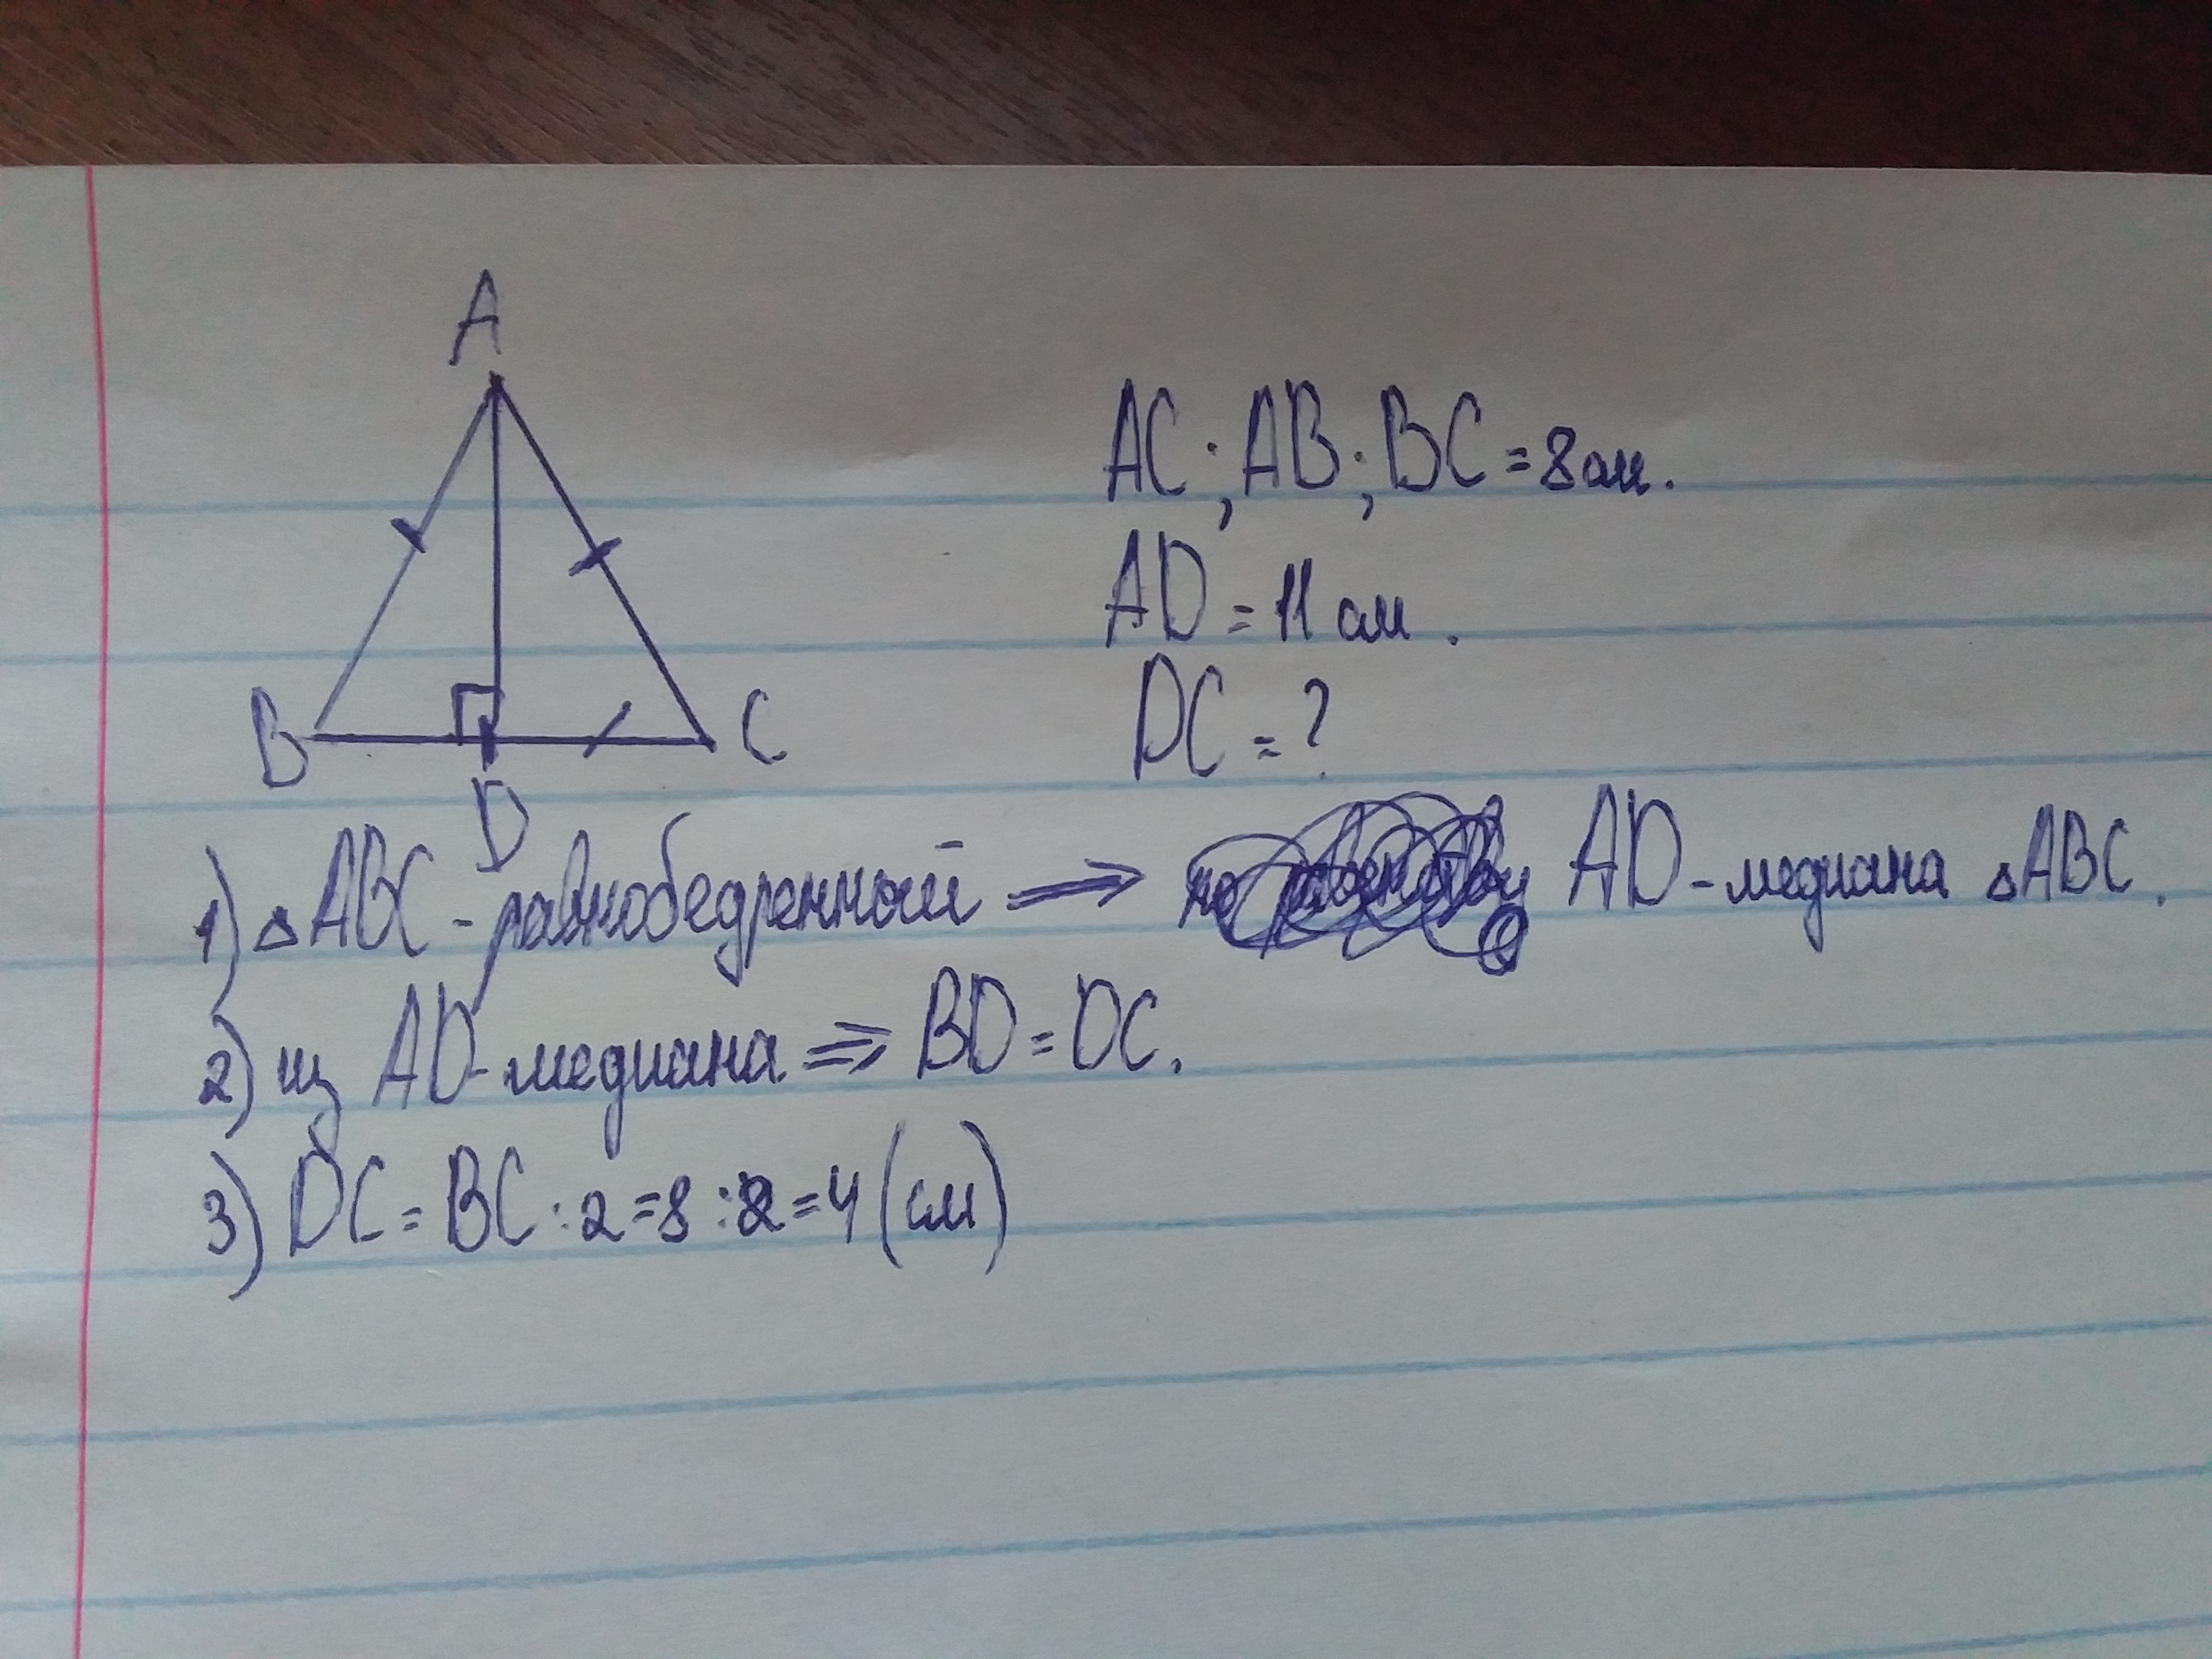 A
AC; AB; BC = 8 см.
AD = 11 см.
B C
DC = ?
D
1) △ABC - равнобедренный ⟹ AD - медиана △ABC.
2) из AD - медиана ⟹ BD = DC.
3) DC = BC : 2 = 8 : 2 = 4 (см)